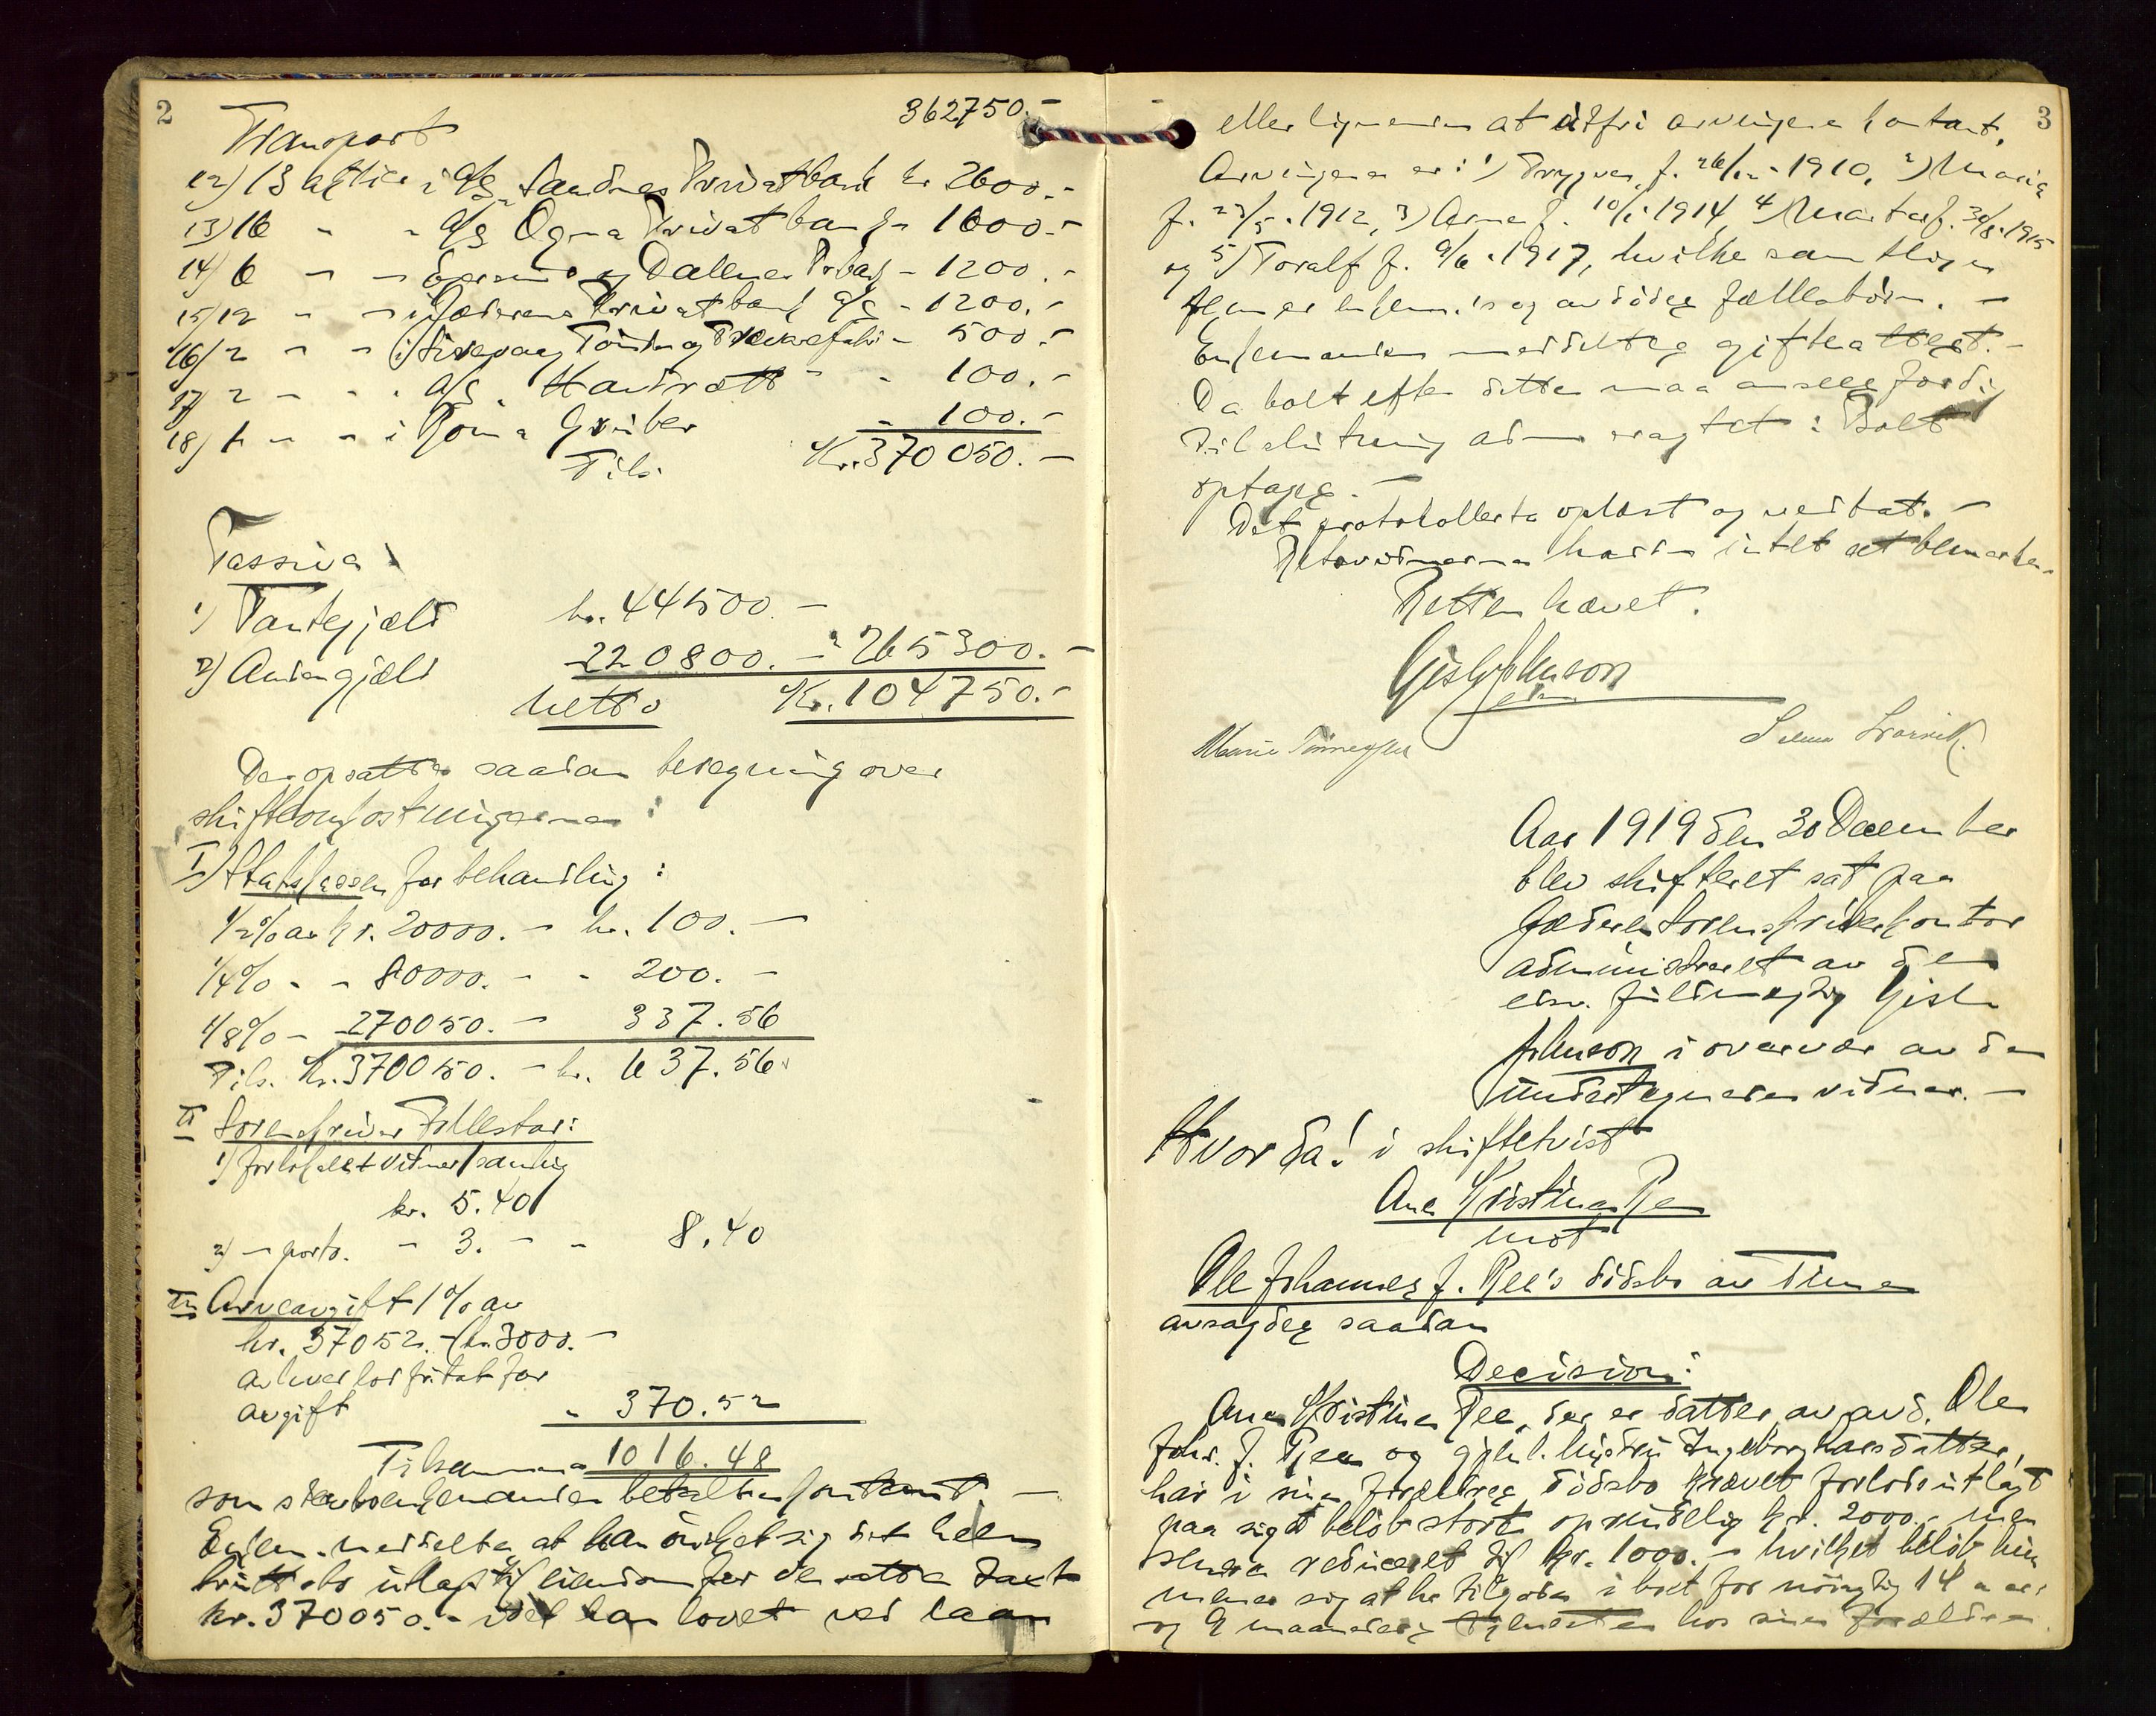 2
Transport 362750.-
12) 13 aktier i A/S Sandnes Privatbank kr 2600.-
13) 16 " - A/S Ogna Privatbank - 1600.-
14) 6 - - Egersund og Dalenes Pr.bank - 1200.-
15) 12 - - i Jæderens Privatbank A/S - 1200.-
16) 2 - - i Sirevaag Tønde og - 500.-
17) 2 - - A/S - 100.-
18) 1 - - i Gruber - 100.-
Tils. Kr. 370050.-
Passiva
1) Pantegjæld kr. 44500.-
2) Andengjæld 220800.- " 265300.-
netto Kr. 104750.-
Der opsattes saadan beregning over
skifteomkostningerne:
I) Statskassen for behandling:
1/2% av kr. 20000.- kr. 100.-
1/4% - - 80000.- - 200.-
1/8% - 270050.- 337.56
Tils. Kr. 370050.- kr. 637.56
II Sorenskriver Fallestar:
1) for lokale + vidner samlig
kr. 5.40
2) - porto. - 3.- - 8.40
III Arveavgift 1% av
kr. 37052.- (kr. 3000.-
av hver lod fritat for
avgift - 370.52
Tilsammen 1016.48
som enkemanden betalte kontant.-
Enkem. meddelte at han ønsket sig det hele
bo utlagt til eiendom for den satte taxt
kr. 370050.- idet han lovet ved laan
3
eller lignende at utfri arvingene kontant.
Arvingene er: 1) Trygve, f. 1910, 2) Maria
f. 23/5.1912, 3) Arne f. 10/1 1914, 4) Marta f. 30/8.1915
og 5) Toralf f. 9/6.1917, hvilke samtlige
er enkem.'s og avdødes fællesbørn.-
Enkemanden meddeltes gifteattest.-
Da boet efter dette maa ansees færdig
til slutning blev avsagt: Boet
optages.-
Det protokollerte oplæst og vedtat.-
Retsvidnerne hadde intet at bemærke.
Retten hævet.
Gisle Johnson
edsv.
Marie
Aar 1919 den 30 December
blev skifteret sat paa
Jæderen Sorenskriverkontor
administreret av den
edsv. fuldmægtig Gisle
Johnson i overvær av de
undertegnede vidner.-
Hvor da! i skiftetvist
Ane Kristine Ree
mot
Ole Johannes J. Ree's dødsbo av Time
avsagdes saadan
Decision:
Ane Kristine Ree, der er datter av avd. Ole
Johs. J. Ree og gjenl. hustru Ingeborg Larsdatter,
har i sine forældres dødsbo krævet forlodsutlagt
paa sig et beløb stort oprindelig kr. 2000.- men
senere reduceret til kr. 1000.- hvilket beløb hun
mener sig at ha tilgode i boet for nøiagtig 14 aar
og 9 maaneders tjeneste hos sine forældre